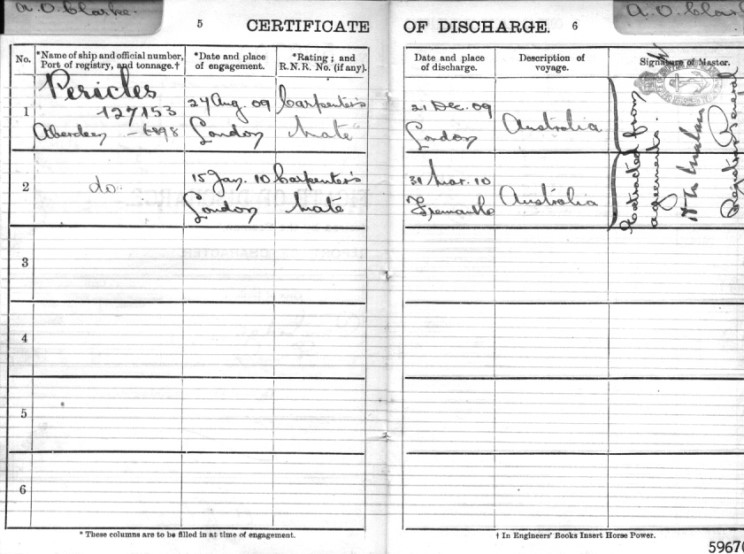 A. O. Clarke.
5 CERTIFICATE OF DISCHARGE. 6
A. O. Clark
No.
*Name of ship and official number, Port of registry, and tonnage.†
*Date and place of engagement.
*Rating; and R.N.R. No. (if any).
Date and place of discharge.
Description of voyage.
Signature of Master.
1
Pericles
127153
Aberdeen - 6898
24 Aug. 09
London
Carpenter's
Mate
21 Dec. 09
London
Australia
Extracted from
agreements.
Registrar General
2
do.
15 Jan. 10
London
Carpenter's
Mate
31 Mar. 10
Fremantle
Australia
3
4
5
6
* These columns are to be filled in at time of engagement.
† In Engineers' Books Insert Horse Power.
5967